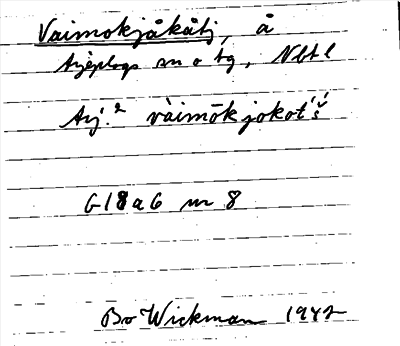 Vaimokjåkåtj, å
Arjeplogs sn o tg, Nbtl
Arj.² vàimōk jokot'š́
G18a6 nr 8
Bo Wickman 1942